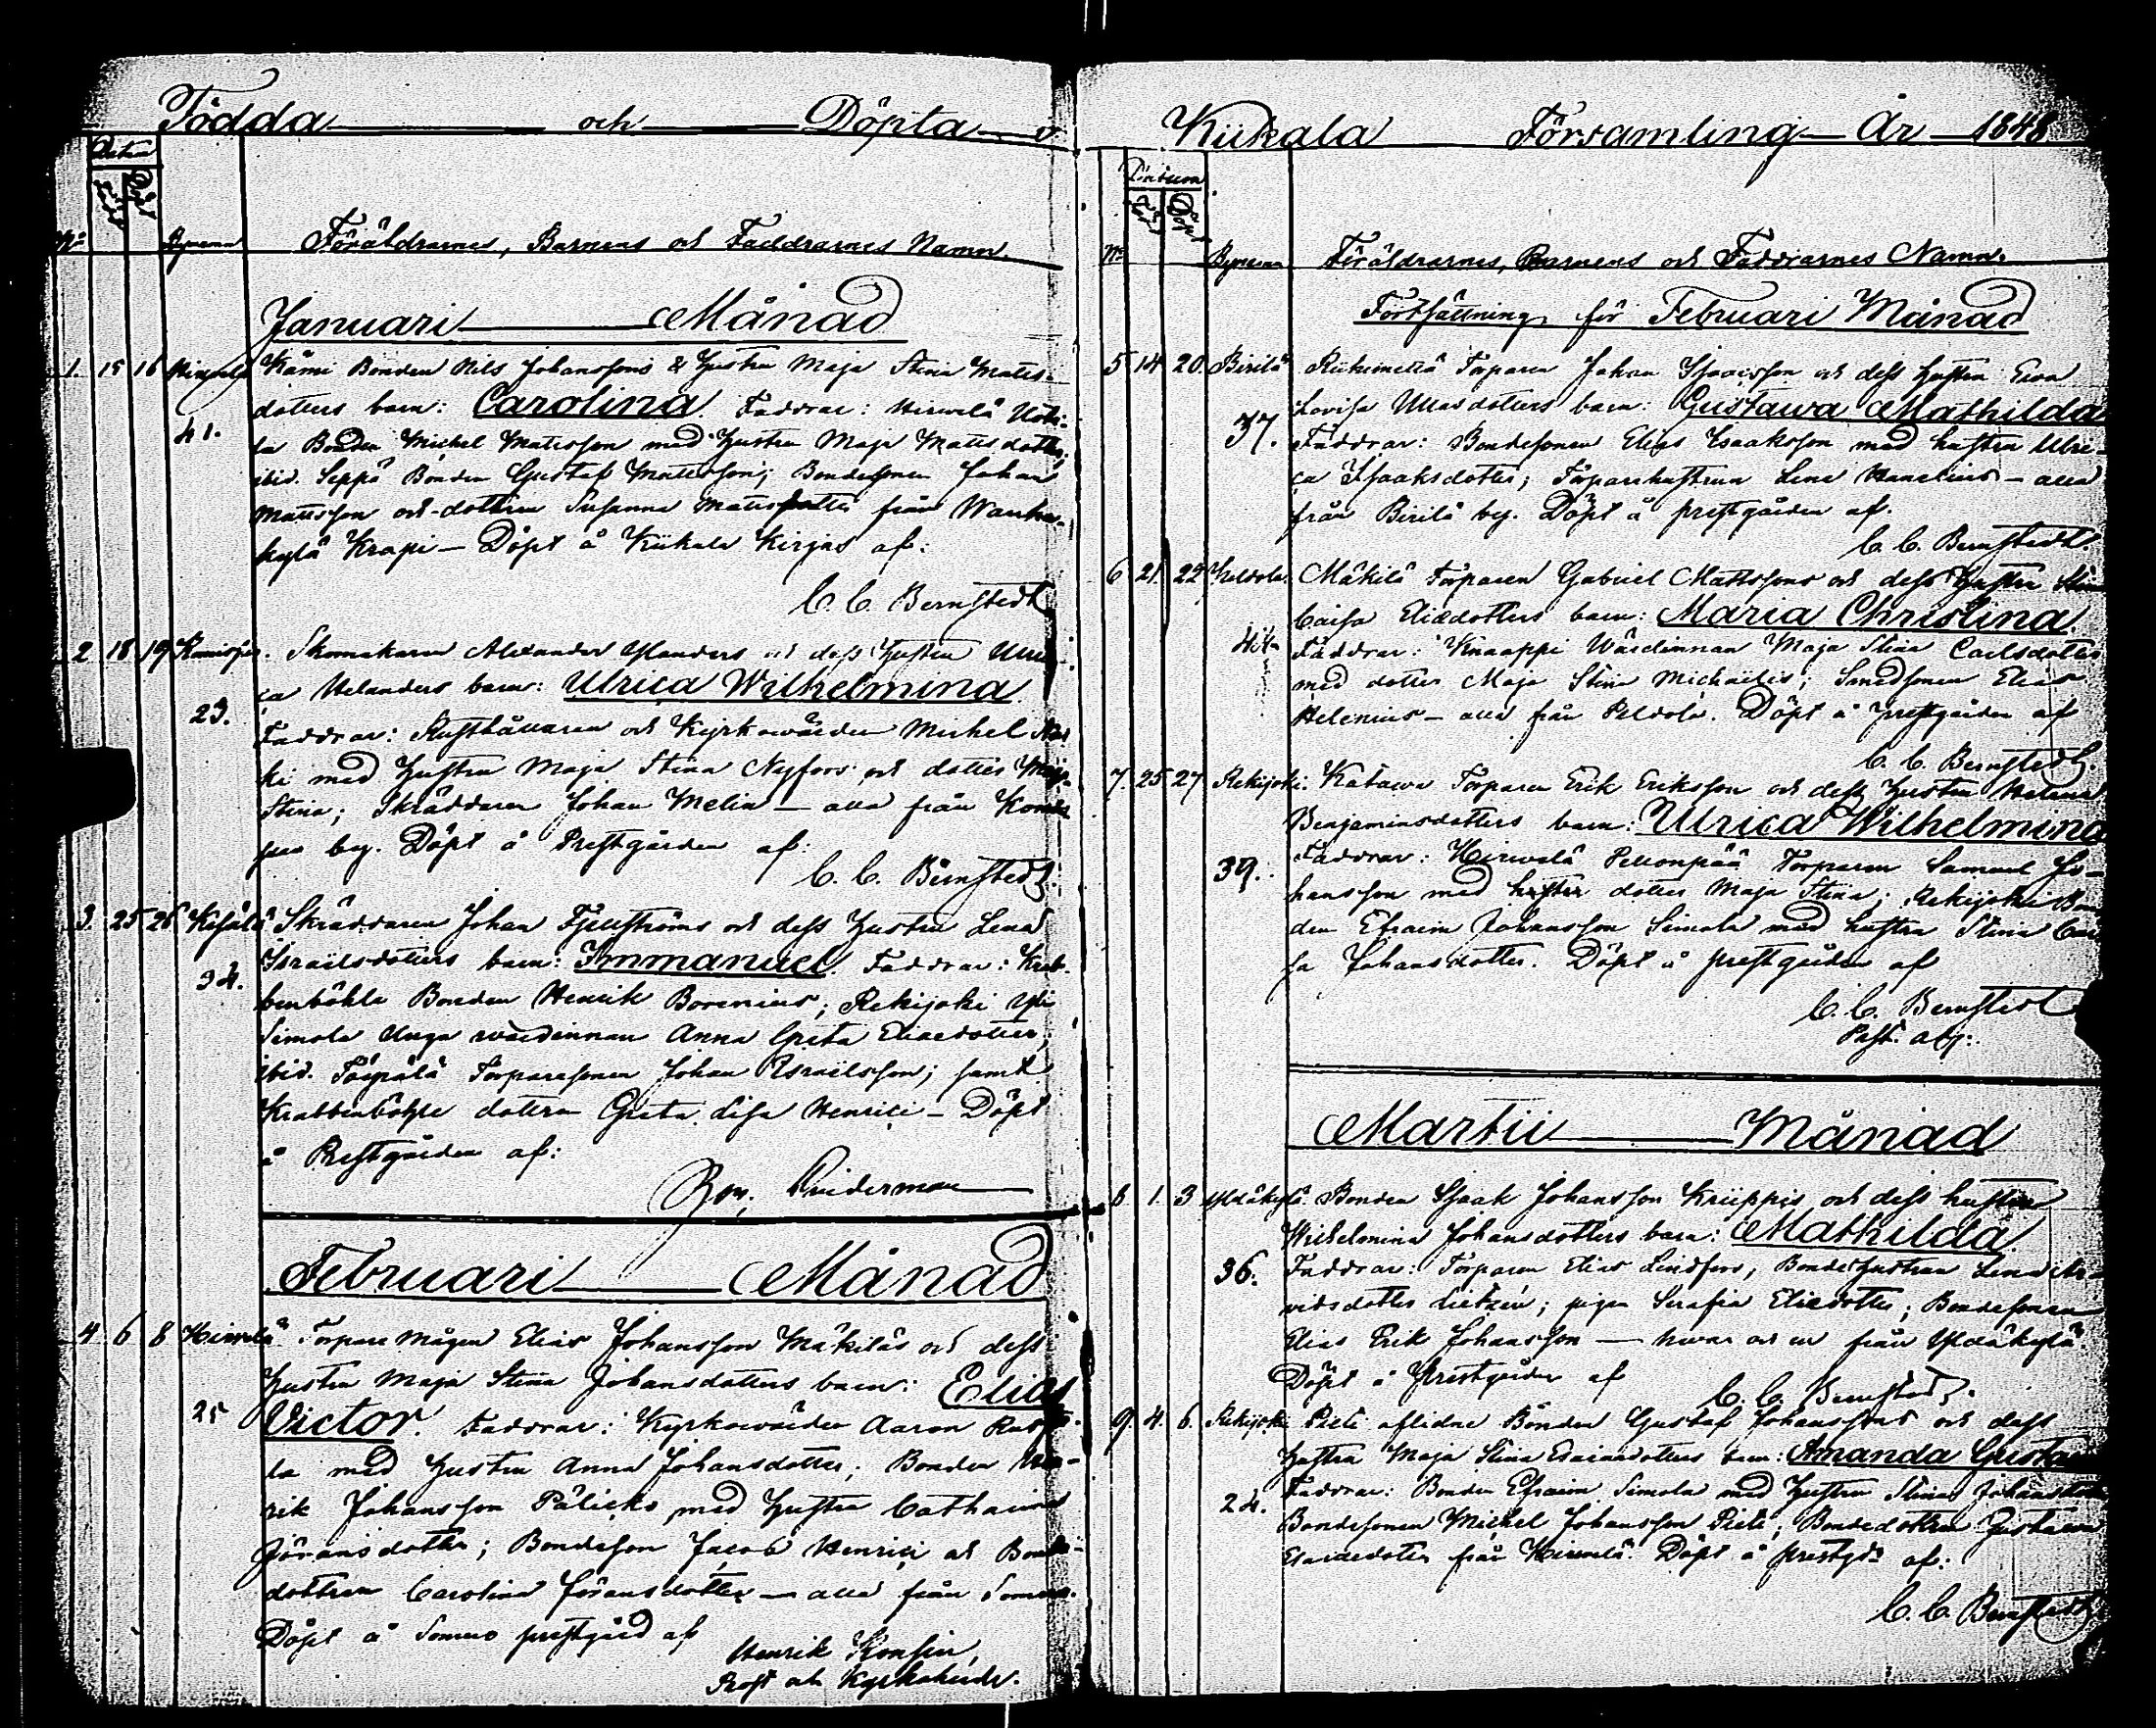 Födda och Döpta i
Datum
Född Döpt
No Bynamn Föräldrarnes, Barnens och Faddrarnes Namn.
Januari Månad
1. 15 16 Hirvelä Kämi Bonden Nils Johanssons & hustru Maja Stina Matts-
dotters barn: Carolina. Faddrar: Hirvelä
41.
Bonden Michel Mattsson med hustru Maja Mattsdotter;
ibid. Seppä Bonden Gustaf Mattsson; Bondesonen Johan
Mattsson och dottren Susanna Mattsdotter från Wanha-
kylä Krapi — Döpt å Kiikala Kirjas af:
C. C. Bernstedt
2 18 19 Skomakaren Alexander och dess hustru Ulri-
ca Helanders barn: Ulrica Wilhelmina.
23.
Faddrar: och Kyrkowärden Michel
ki med hustru Maja Stina Nyfors och dotter Maja
Stina; Skräddaren Johan Melin — alla från
by. Döpt å Prestgården af:
C. C. Bernstedt
3. 25 26 Skräddaren Johan Fjellströms och dess hustru Lena
Israelsdotters barn: Immanuel. Faddrar: Krab-
34.
benböhle Bonden Henrik Borenius; Rekijoki Yli
Simola unga wärdinnan Anna Greta Eliædotter;
ibid. Torparesonen Johan Israelsson; samt
Krabbenböhle dottren Greta Lisa Henrici — Döpt
å Prestgården af:
Februari Månad
4 6 8 Hirvelä Torpare Mågen Elias Johansson Mäkiläs och dess
hustru Maja Stina Johansdotters barn: Elias
25
Victor. Faddrar: Kyrkowärden Aaron
la med hustru Anna Johansdotter; Bonden Hen-
rik Johansson med hustru Catharina
Göransdotter; Bondeson Jacob Henrici och Bonde-
dottren Carolina Göransdotter — alla från Somero.
Döpt å Somero prestgård af
Henrik Konsin,
Prost och Kyrkoherde.
Kiikala Församling År 1848
Datum
Född Döpt
No Bynamn Föräldrarnes, Barnens och Faddrarnes Namn.
Fortsättning för Februari Månad
5 14 20. Birilä Torparen Johan Isaacsson och dess hustru Eva
Lovisa Ullasdotters barn: Gustawa Mathilda
37.
Faddrar: Bondesonen Elias Isaaksson med hustru Ulri-
ca Isaaksdotter; Torparehustrun Lena Hanelius — alla
från Birilä by. Döpt å prestgården af.
C. C. Bernstedt.
6 21. 22 Peldola. Mäkilä Torparen Gabriel Mattssons och dess hustru
Caisa Eliædotters barn: Maria Christina.
44.
Faddrar: Knaappi Wärdinnan Maja Stina Carlsdotter
med dotter Maja Stina Michaelis; Smedsonen Elias
Helenius — alla från Peldola. Döpt å prestgården af
C. C. Bernstedt.
7. 25 27 Rekijoki. Torparen Erik Eriksson och dess hustru Helena
Benjaminsdotters barn: Ulrica Wilhelmina
39.
Faddrar: Hirvelä Pellonpää Torparen Samuel Jo-
hansson med dotter Maja Stina; Rekijoki Bon-
den Efraim Johansson Simola med hustru Stina Cai-
sa Johansdotter. Döpt å prestgården af
C. C. Bernstedt
Past. adj:
Martii Månad
1. 3 Yldäkylä. Bonden Isaak Johansson Krüppis och dess hustru
Wilhelmina Johansdotters barn: Mathilda.
36.
Faddrar: Torparen Elias Lindfors; Bondehustrun Lena
vidsdotter; pigan Serafia Eliædotter; Bondesonen
Elias Erik Johansson — hvar och en från Yldäkylä.
Döpt å Prestgården af
C. C. Bernstedt.
9. 4. 6. Rekijoki Pieti aflidne Bonden Gustaf Johanssons och dess
hustru Maja Stina Esaiædotters barn: Amanda Gustawa
24.
Faddrar: Bonden Efraim Simola med hustru Stina Johansdotter
Bondesonen Michel Johansson Pieti; Bondedottren Gustawa
Esaiædotter från Hirvelä. Döpt å prestgdn af:
C. C. Bernstedt